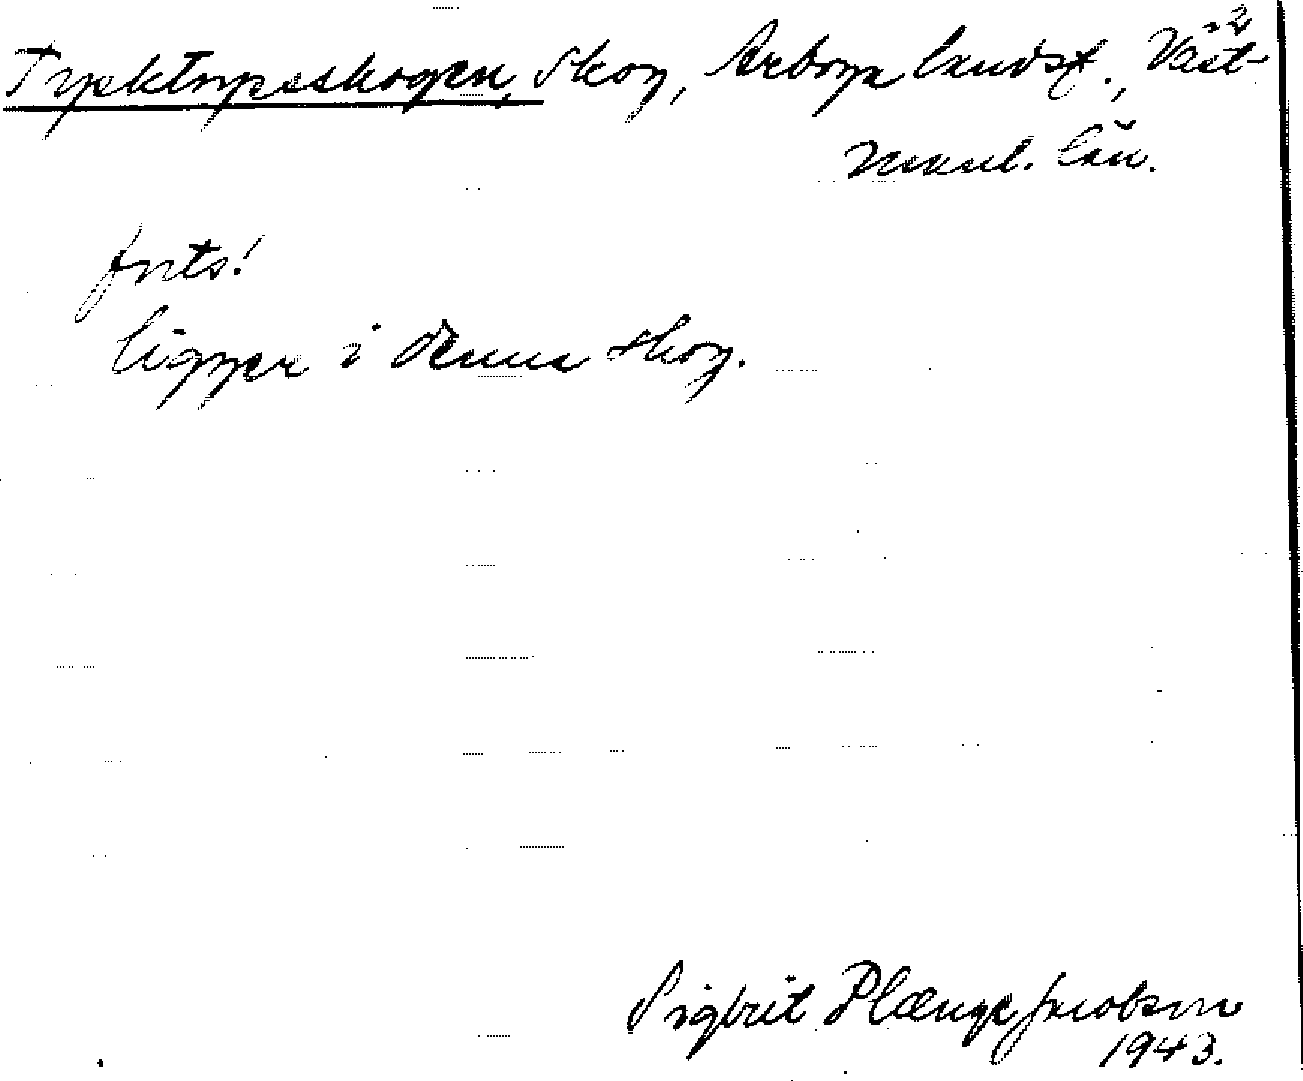 2
Trycktorpsskogen, Skog, Arboga landsf., Väst-
manl. län.
forts!
ligger i denna skog.
Sigbrit Plænge Jacobson
1943.